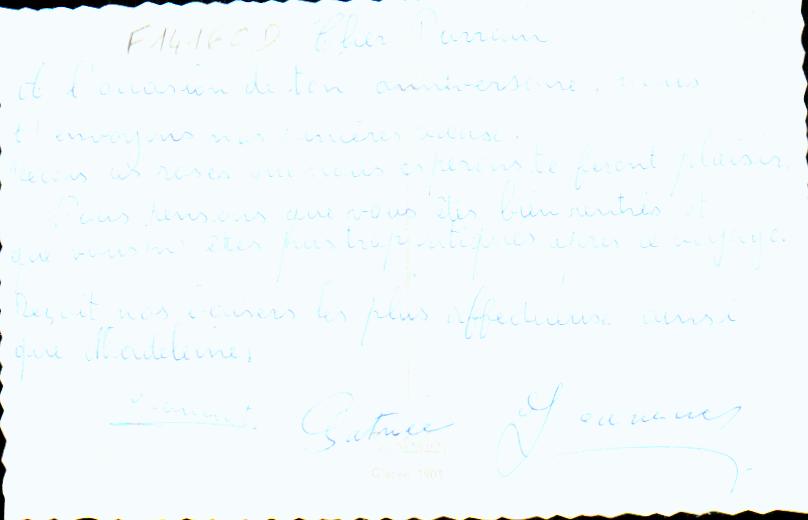 F1416CD Cher Parrain
A l'occasion de ton anniversaire, nous
t'envoyons nos sincères vœux.
Reçois ces roses qui nous espérons te feront plaisir.
Nous pensons que vous êtes bien rentrés et
que vous n'êtes pas trop fatigués après ce voyage.
Reçoit nos baisers les plus affectueux ainsi
que Madeleine.
Patrice